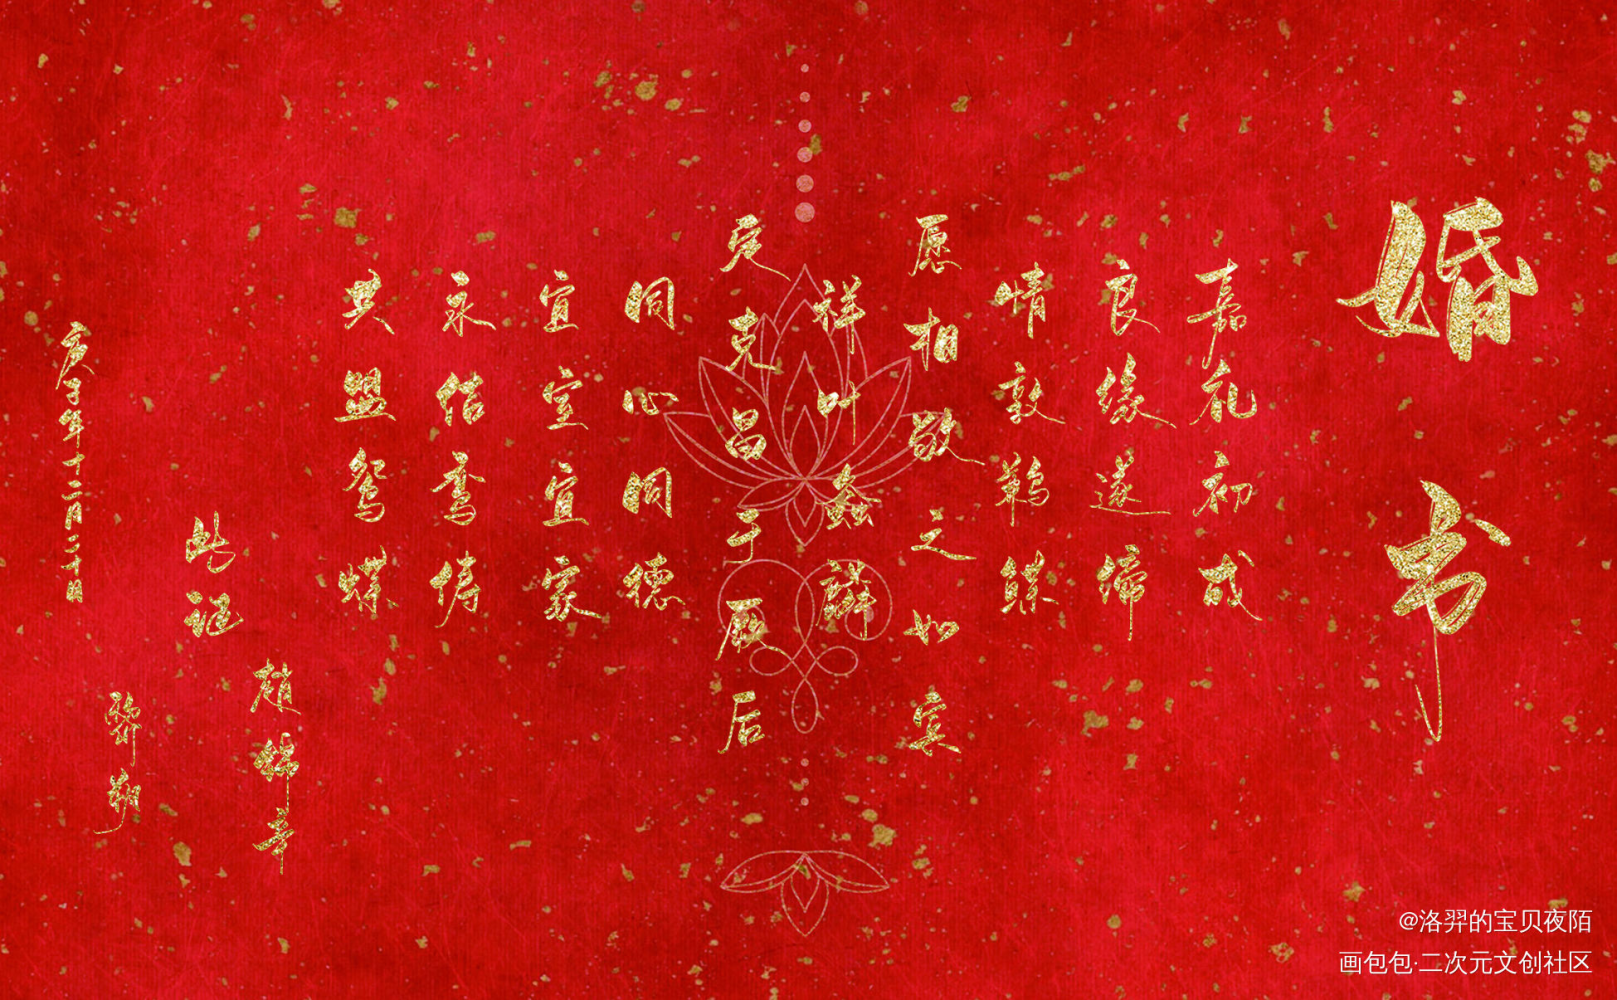 婚书
嘉礼初成
良缘遂缔
情敦鹣鲽
愿相敬之如宾
祥叶螽麟
定克昌于厥后
同心同德
宜室宜家
永偕鸾俦
共盟鸳蝶
此证
庚子年十二月二十日
@洛羿的宝贝夜陌
画包包·二次元文创社区